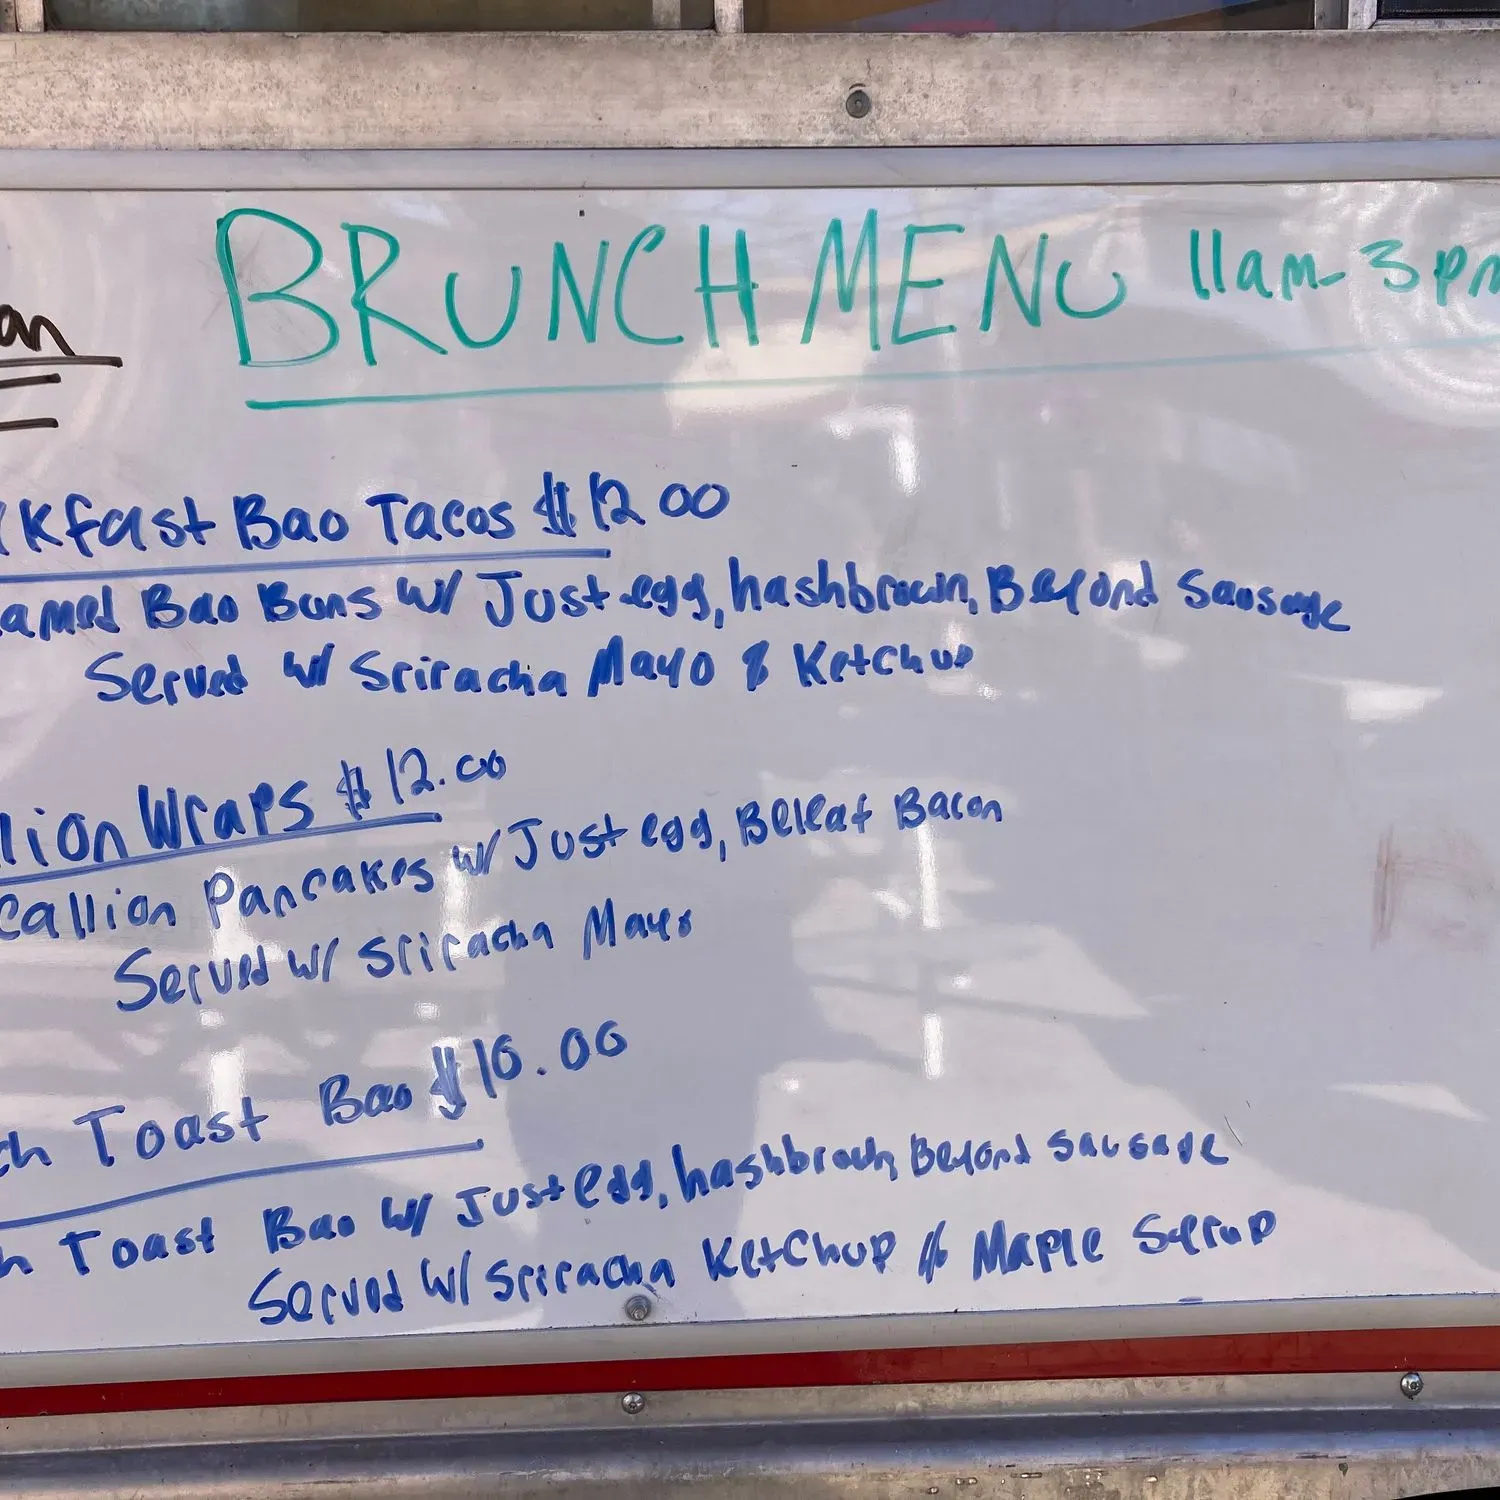 BRUNCH MENU 11am-3pm
an
kfast Bao Tacos $12 00
amed Bao Buns w/ Just egg, hashbrown, Beyond Sausage
Served w/ Sriracha Mayo & Ketchup
lion Wraps $12.00
callion Pancakes w/ Just egg, BeLeaf Bacon
Served w/ Sriracha Mayo
ch Toast Bao $10.00
h Toast Bao w/ Just egg, hashbrown, Beyond Sausage
Served w/ Sriracha Ketchup & Maple Syrup